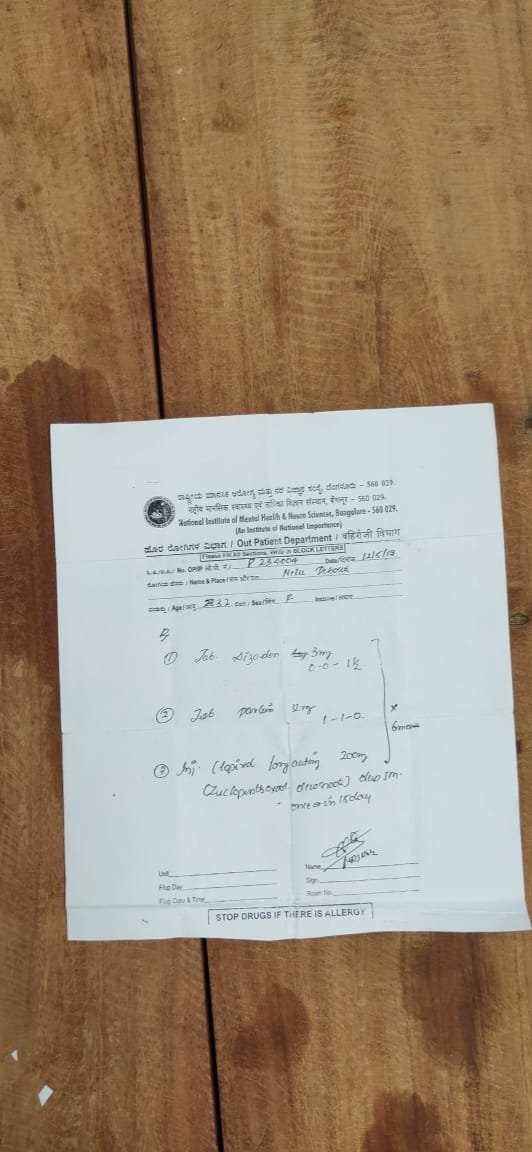 ರಾಷ್ಟ್ರೀಯ ಮಾನಸಿಕ ಆರೋಗ್ಯ ಮತ್ತು ನರ ವಿಜ್ಞಾನ ಸಂಸ್ಥೆ, ಬೆಂಗಳೂರು - 560 029.
राष्ट्रीय मानसिक स्वास्थ्य एवं तंत्रिका विज्ञान संस्थान, बेंगलूर - 560 029.
National Institute of Mental Health & Neuro Sciences, Bangalore - 560 029.
(An Institute of National Importance)
ಹೊರ ರೋಗಿಗಳ ವಿಭಾಗ / Out Patient Department / वहिरोगी विभाग
Please Fill All Sections, Write in BLOCK LETTERS
No. OP/IP P 234004 Date/दिनांक 12/5/19
Name & Place / नाम और पता
Age / आयु 32 Sex/लिंग F Income/आय
① Tab. 3mg
0-0-1½
② Tab 2mg
1-1-0.
x
③ Inj. Clopixol long acting 200mg
(Zuclopenthixol decanoate) deep Im.
once in 15day
Unit
F/up Day
F/up Date & Time
Name
Sign
Room No.
STOP DRUGS IF THERE IS ALLERGY